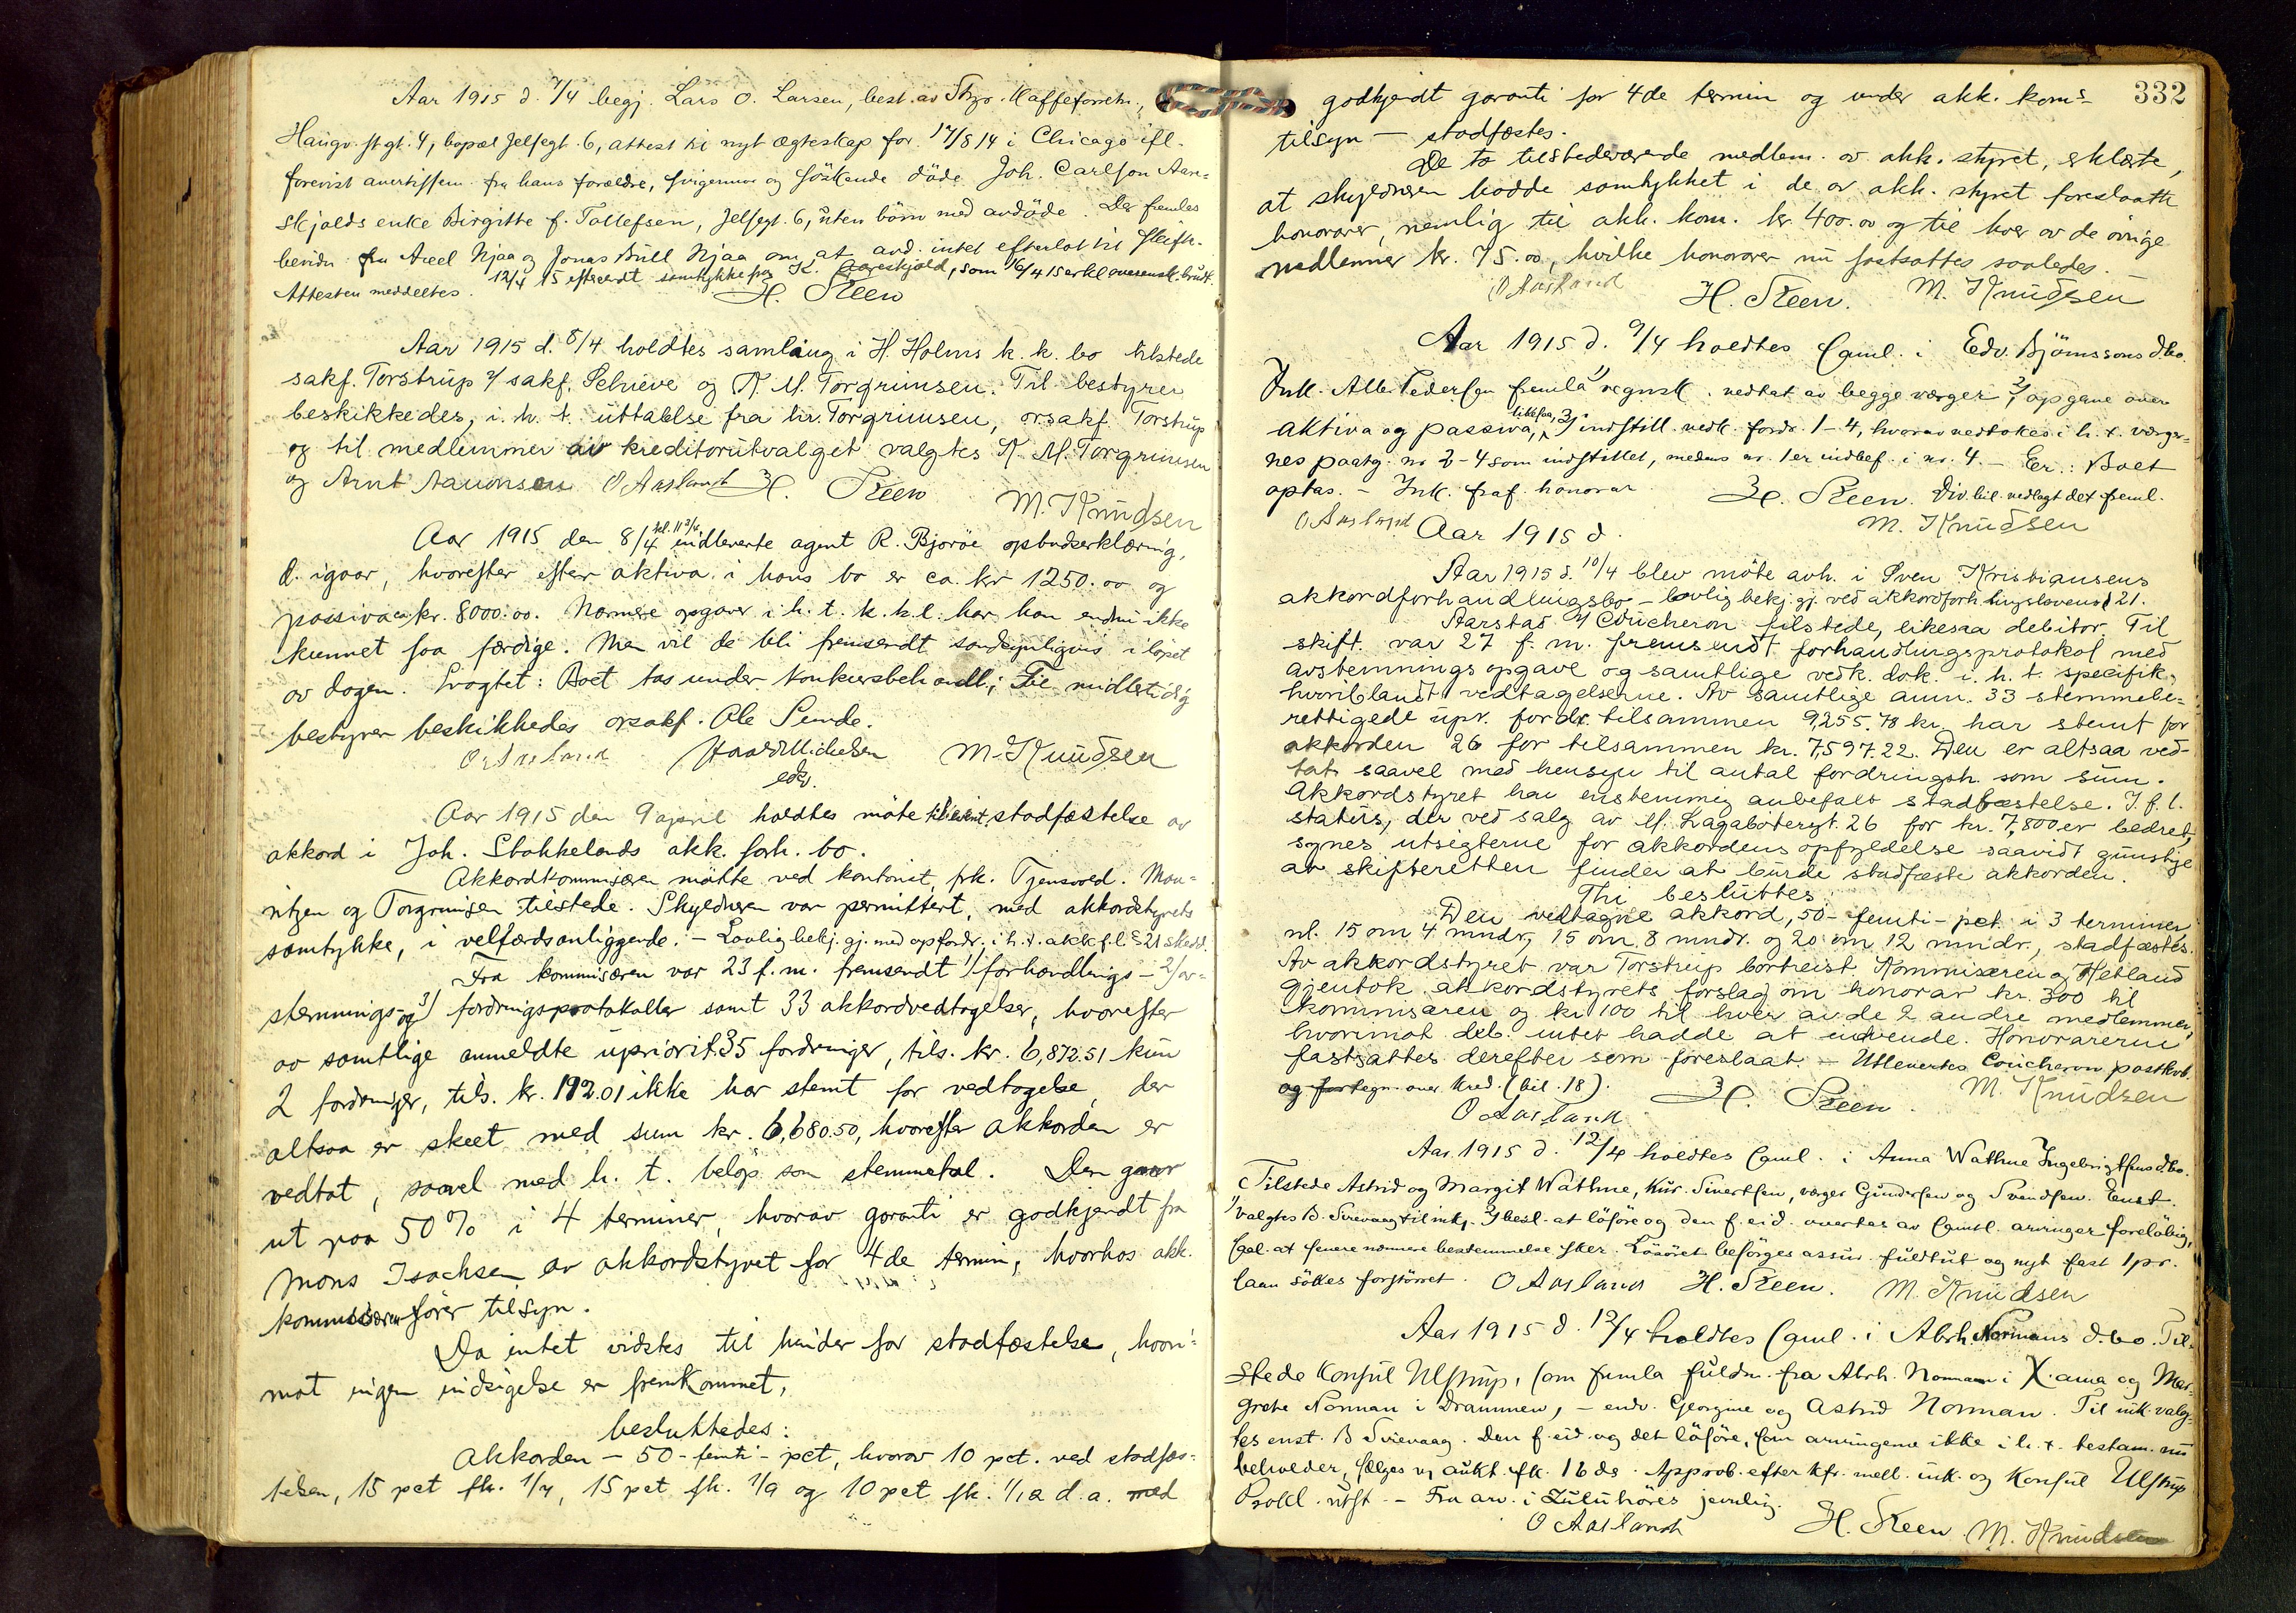 Aar 1915 d. 7/4 begj. Lars O. Larsen, best. av Kaffeforretn.,
Haugv. st. gt. 4, bopæl Jelsegt. 6, attest til nyt ægteskap for 17/8 14 i Chicago ifl.
forevist avertissem. fra hans forældre, svigermor og söskende döde Joh. Carlson Aar-
skjolds enke Birgitte f. Tollefsen, Jelsegt. 6, uten börn med avdöde. Der fremlas
bevidn. fra Axel Njaa og Jonas Bull Njaa om at avd. intet efterlot til skifte.
Attesten meddeltes. 12/4 15 eftersendt samtykke fra K. Aareskjold, som 16/4 15
H. Steen
Aar 1915 d. 8/4 holdtes samling i H. Holms k. k. bo tilstede
sakf. Torstrup f/ sakf. Schieve og K. M. Torgrimsen. Til bestyrer
beskikkedes, i. h. t. uttalelse fra hr. Torgrimsen, orsakf. Torstrup
og til medlemmer av kreditorutvalget valgtes K. M. Torgrimsen
og Arnt Aamonsen O Aasland H. Steen
M. Knudsen
Aar 1915 den 8/4 kl. 11 3/4 indleverte agent R. Bjoröe opbudserklæring,
d. igaar, hvorefter efter aktiva i hans bo er ca. kr 1250.00 og
passiva ca kr. 8000.00. Nærmere opgaver i h. t. k. k. l. har han endnu ikke
kunnet faa færdige. Men vil de bli fremsendt sandsynligvis i löpet
av dagen. Eragtet: Boet tas under konkursbehandl; Til midlertidig
bestyrer beskikkedes orsakf. Ole Sunde.
O Aasland Haard Michelsen M. Knudsen
edsv.
Aar 1915 den 9 april holdtes möte til event. stadfæstelse av
akkord i Joh. Stokkelands akk. forh. bo.
Akkordkommisæren mötte ved kontorist, frk. Tjensvold. Mau-
ritzen og Torgrimsen tilstede. Skyldneren var permittert, med akkordstyrets
samtykke, i velfærdsanliggende. – Lovlig bekj. gj. med opfordr. i h. t. akkf. l. § 21 skedd.
Fra kommisæren var 23 f. m. fremsendt 1/ forhandlings- 2/ av-
stemnings- og 3/ fordringsprotokoller samt 33 akkordvedtagelser, hvorefter
av samtlige anmeldte upriorit. 35 fordringer, tils. kr. 6,872.51 kun
2 fordringer, tils. kr. 192.01 ikke har stemt for vedtagelse, der
altsaa er skeet med sum kr. 6,680.50, hvorefter akkorden er
vedtat, saavel med h. t. belöp som stemmetal. Den gaar
ut paa 50% i 4 terminer, hvorav garanti er godkjendt fra
Mons Isachsen av akkordstyret for 4de termin, hvorhos akk.
kommisæren förer tilsyn.
Da intet vidstes til hinder for stadfæstelse, hvori-
mot ingen indsigelse er fremkommet,
besluttedes:
Akkorden – 50 – femti – pct, hvorav 10 pct. ved stadfæs-
telsen, 15 pct fk. 1/7, 15 pct fk. 1/9 og 10 pct fk. 1/12 d. a. med
332
godkjendt garanti for 4de termin og under akk. koms
tilsyn – stadfæstes.
De to tilstedeværende medlem. av akk. styret, erklærte,
at skyldneren hadde samtykket i de av akk. styret foreslaatte
honorarer, nemlig til akk. kom. kr. 400.00 og til hver av de övrige
medlemmer kr. 75.00, hvilke honorarer nu fastsattes saaledes.
O Aasland H. Steen. M. Knudsen
Aar 1915 d. 9/4 holdtes saml. i Edv. Björnssons d. bo.
Ink. Alb. Pedersen fremla 1/ regnsk. vedtat av begge værger, 2/ opgave over
aktiva og passiva, likesaa, 3/ indstill. vedk. fordr. 1–4, hvorav vedtokes i h. t. værger-
nes paatg. nr 2–4 som indstillet, medens nr. 1 er indbef. i nr. 4. – Er.: Boet
optas. – Ink. fraf. honorar. H. Steen. Div. bil. vedlagt det freml.
O Aasland Aar 1915 d. M. Knudsen
Aar 1915 d. 10/4 blev möte avh. i Sven Kristiansens
akkordforhandlingsbo – lovlig bekj. gj. ved akkordforh. lingslovens § 21.
Aarstad f/ Coucheron tilstede, likesaa debitor. Til
skift. var 27 f. m. fremsendt forhandlingsprotokol med
avstemningsopgave og samtlige vedk. dok. i. h. t. specifik.,
hvoriblandt vedtagelserne. Av samtlige anm. 33 stemmebe-
rettigede upr. fordr. tilsammen 9,255.78 kr, har stemt for
akkorden 26 for tilsammen kr. 7,597.22. Den er altsaa ved-
tat saavel med hensyn til antal fordringsh. som sum.
Akkordstyret har enstemmig anbefalt stadfæstelse. I. f. l.
status, der ved salg av M. Lagabötersgt. 26 for kr. 7,800 er bedret,
synes utsigterne for akkordens opfyldelse saavidt gunstige
at skifteretten finder at burde stadfæste akkorden.
Thi besluttes:
Den vedtagne akkord, 50 – femti – pct. i 3 terminer,
nl. 15 om 4 mndr, 15 om 8 mndr. og 20 om 12 mndr., stadfæstes.
Av akkordstyret var Torstrup bortreist. Kommisæren og Hetland
gjentok akkordstyrets forslag om honorar kr. 300 til
kommisæren og kr 100 til hver av de 2 andre medlemmer,
hvorimot deb. intet hadde at indvende. Honorarerne
fastsattes derefter som foreslaat. – Utleveres Coucheron postkvit.
og fortegn. over kred. (bil. 18). H. Steen. M. Knudsen
O Aasland
Aar 1915 d. 12/4 holdtes saml. i Anna Wathne Ingebrigtsens d. bo.
Tilstede Astrid og Margit Wathne, kur. Sivertsen, værger Gundersen og Svendsen. Enst.
valgtes B. Svievaag til ink. 2/ besl. at lösöre og den f. eid. overtas av samtl. arvinger foreløbig,
saal. at senere nærmere bestemmelse sker. Lösöret besörges assur. fuldtut og nyt fast 1 pr.
laan sökes forstörret. O Aasland H. Steen. M. Knudsen
Aar 1915 d. 12/4 holdtes saml. i Abrh. Normans d. bo. Til-
stede konsul Ulstrup, som fremla fuldm. fra Abrh. Norman i X.ania og Mar-
grete Norman i Drammen, – endv. Georgine og Astrid Norman. Til ink. valg-
tes enst. B Svievaag. Den f. eid. og det lösöre, som arvingerne ikke i h. t. bestem. nu
beholder, sælges v/ aukt. fk. 16 ds. Approb. efter kfr. mell. ink. og Konsul Ulstrup
Prokl. utst. – Fra arv. i Zulu höres jevnlig.
O Aasland H. Steen M. Knudsen